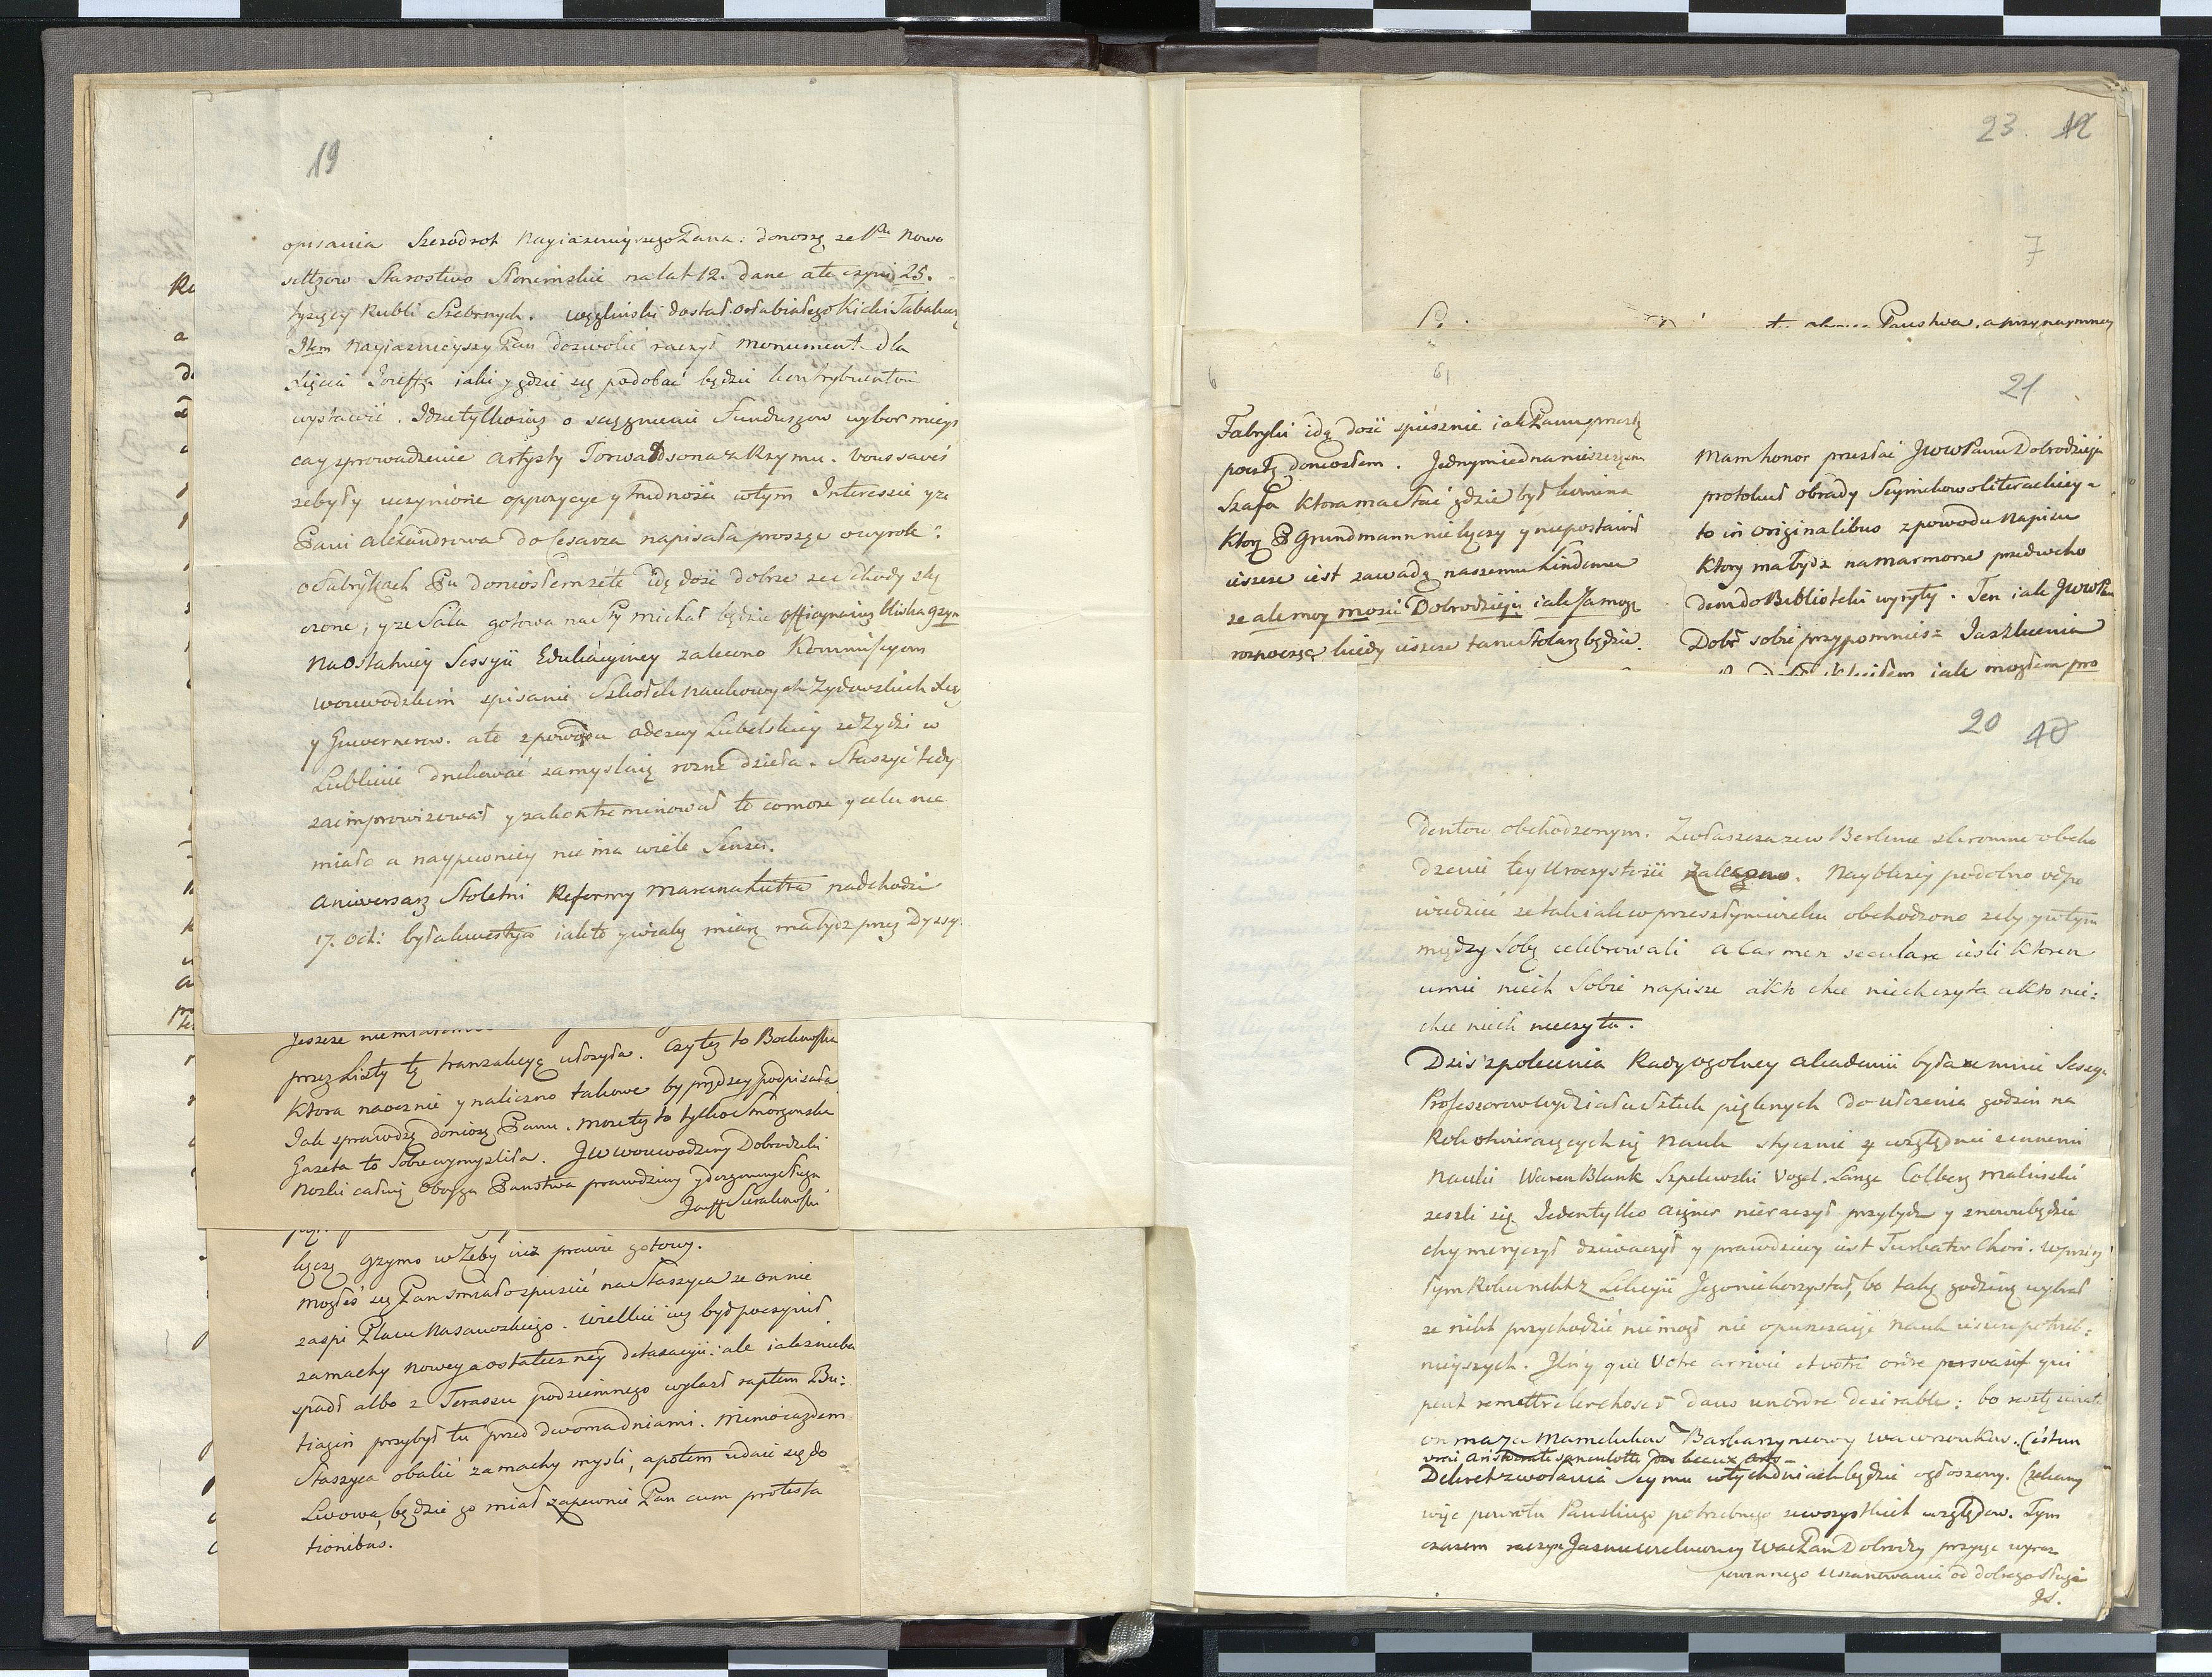 19
opisania Szczodrot Nayiaśnieyszego Pana: donoszę ze Pu Nowo
siltzow Starostwo Słonimskie na lat 12. dane ale czyni 25.
tysięcy Rubli Srebrnych. Węgliński dostał Orła białego Kicki
Item Nayiaśnieyszy Pan dozwolić raczył monument dla
Xięcia Jozeffa iaki y gdzie się podobać będzie kontrybuentom
wystawić. Idzie tylko iuż o sciągnienie Funduszow wybor mieys
ca y sprowadzenie Artysty Torwaldsona z Rzymu. Vous savés
żeby były uczynione oppozycye y trudności w tym Interessie y ze
Pani Alexandrowa do Cesarza napisała proszęc o wyrok:
o Fabrykach Pu doniosłem że te idę dość dobrze ze schody
czone, y ze Sala gotowa na Sty Michał będzie Officyna iuż bliska gzym
Na ostatniey Sessyi Edukacyiney zalecono Kommissyom
woiewodzkim spisanie Szkołek naukowych Zydowskich
y Guwernerow. ale z powodu odezwy Lubelskiey ze Zydzi w
Lublinie drukować zamyślaią rożne dzieła. Staszyc tedy
zaimprowizował y zakontreminował te co może y celu nie
miało a naypewniey nie ma wiele Sensu.
Aniwersarz Stoletni Reformy Marcina Lutra nadchodzi
17. Oct: była kwestya iak to y wielką miarę ma bydz przez Dyssy

Jeszcze nie
przez Listy tę tranzakcyę ułożyła. Czy też to Boche
ktora naocznie y naliczno takowe by prędzey podpisała
Jak sprawdzę doniosę Panu. może też to tylko Smorgonska
Gazeta to Sobie wymysliła. JW Woiewodziny Dobrodziki
Nozki całuię Oboyga Panstwa prawdziwy y dozgonny Sługa
Joseff Sierakowski

łączą gzyms w Zęby iuż prawie gotowy.
Mogłeś się Pan śmiało spuścić na Staszyca ze on nie
zaspi Placu Kasanowskiego. Wielkie iuż był poczynił
zamachy nowey a ostateczney detaxacyi: ale iak z nieba
spadł albo z Terassu podziemnego wylazł raptem Bu:
tiagin przybył tu przed dwoma dniami. Mimoiazdem
Staszyca obalić zamachy mysli, a potem udaie się do
Lwowa, będzie go miał zapewnie Pan cum protesta
tionibus.

23. 12
7
Panstwa, a przynaymniey

6
61
Fabryki idą dość spiesznie iak Panu przeszłą
pocztą doniosłem. Jedynym iedna nieszczęsna
Szafa ktora ma stać gdzie był komina
Ktorę P Grundmann nie łączy y nie postawił
ieszcze iest zawadą naszemu Lindemu
ze ale moy mosci Dobrodzieju iak Ja mogę
rozpocząć kiedy ieszcze tam Stolarz będzie.

21
Mam honor przesłać JWW Panu Dobrodzieju
protokuł obrady Seymikowo literackiey a
to in originalibus z powodu Napisu
Ktory ma bydz na marmorze przed wcho
dem do Biblioteki wyryty. Ten iak JWW Pan
Dobr sobie przypomnisz
iak mogłem pro

20 10
dentow obchodzonym. Zwłaszcza ze w Berlinie skromne obcho
dzenie tey Uroczystości zalecono. Naybliżey podobno odpo
wiedzieć ze tak iak w przeszłym wieku obchodzono zeby y w tym
między Sobą celebrowali a Carmen seculare iesli ktoren
umie niech Sobie napisze a kto chce niech czyta a kto nie:
chce niech nieczyta.
Dziś z polecenia Rady ogolney Akademii była u mnie Sessya
Professorow wydziału Sztuk pięknych do ułożenia godzin na
Rok otwieraiących się Nauk stycznie y względnie z innemi
Nauki Waren Blank Szpilewski Vogel. Lange Colberg Maliński
zeszli się Jeden tylko Aigner nieraczył przybydz y znowu będzie
chymeryczył dziwaczył y prawdziwy iest Turbator Chori. W przesz
łym Roku nikt z Lekcyi Jego niekorzystał, bo taką godzinę wybrał
ze nikt przychodzić nie mogł nie opuszczaiąc nauk ieszcze potrzeb:
nieyszych. Il n'y que Votre arrivée et votre ordre persuasif qui
peut remettre les choses dans un ordre desirable: bo resztę świata
on ma za Mamelukow Barbarzyncowy. (c'est un
vrai Aristocrate sanculotte des beaux arts
Dekret zwołania Seymu w tych dniach będzie ogłoszony. Czekamy
więc powrotu Panskiego potrzebnego ze wszystkich względow. Tym
czasem raczysz Jasnie Wielmożny Wać Pan Dobrodziy przyiąć wyraz
powinnego uszanowania od dobrego Sługi
JS.